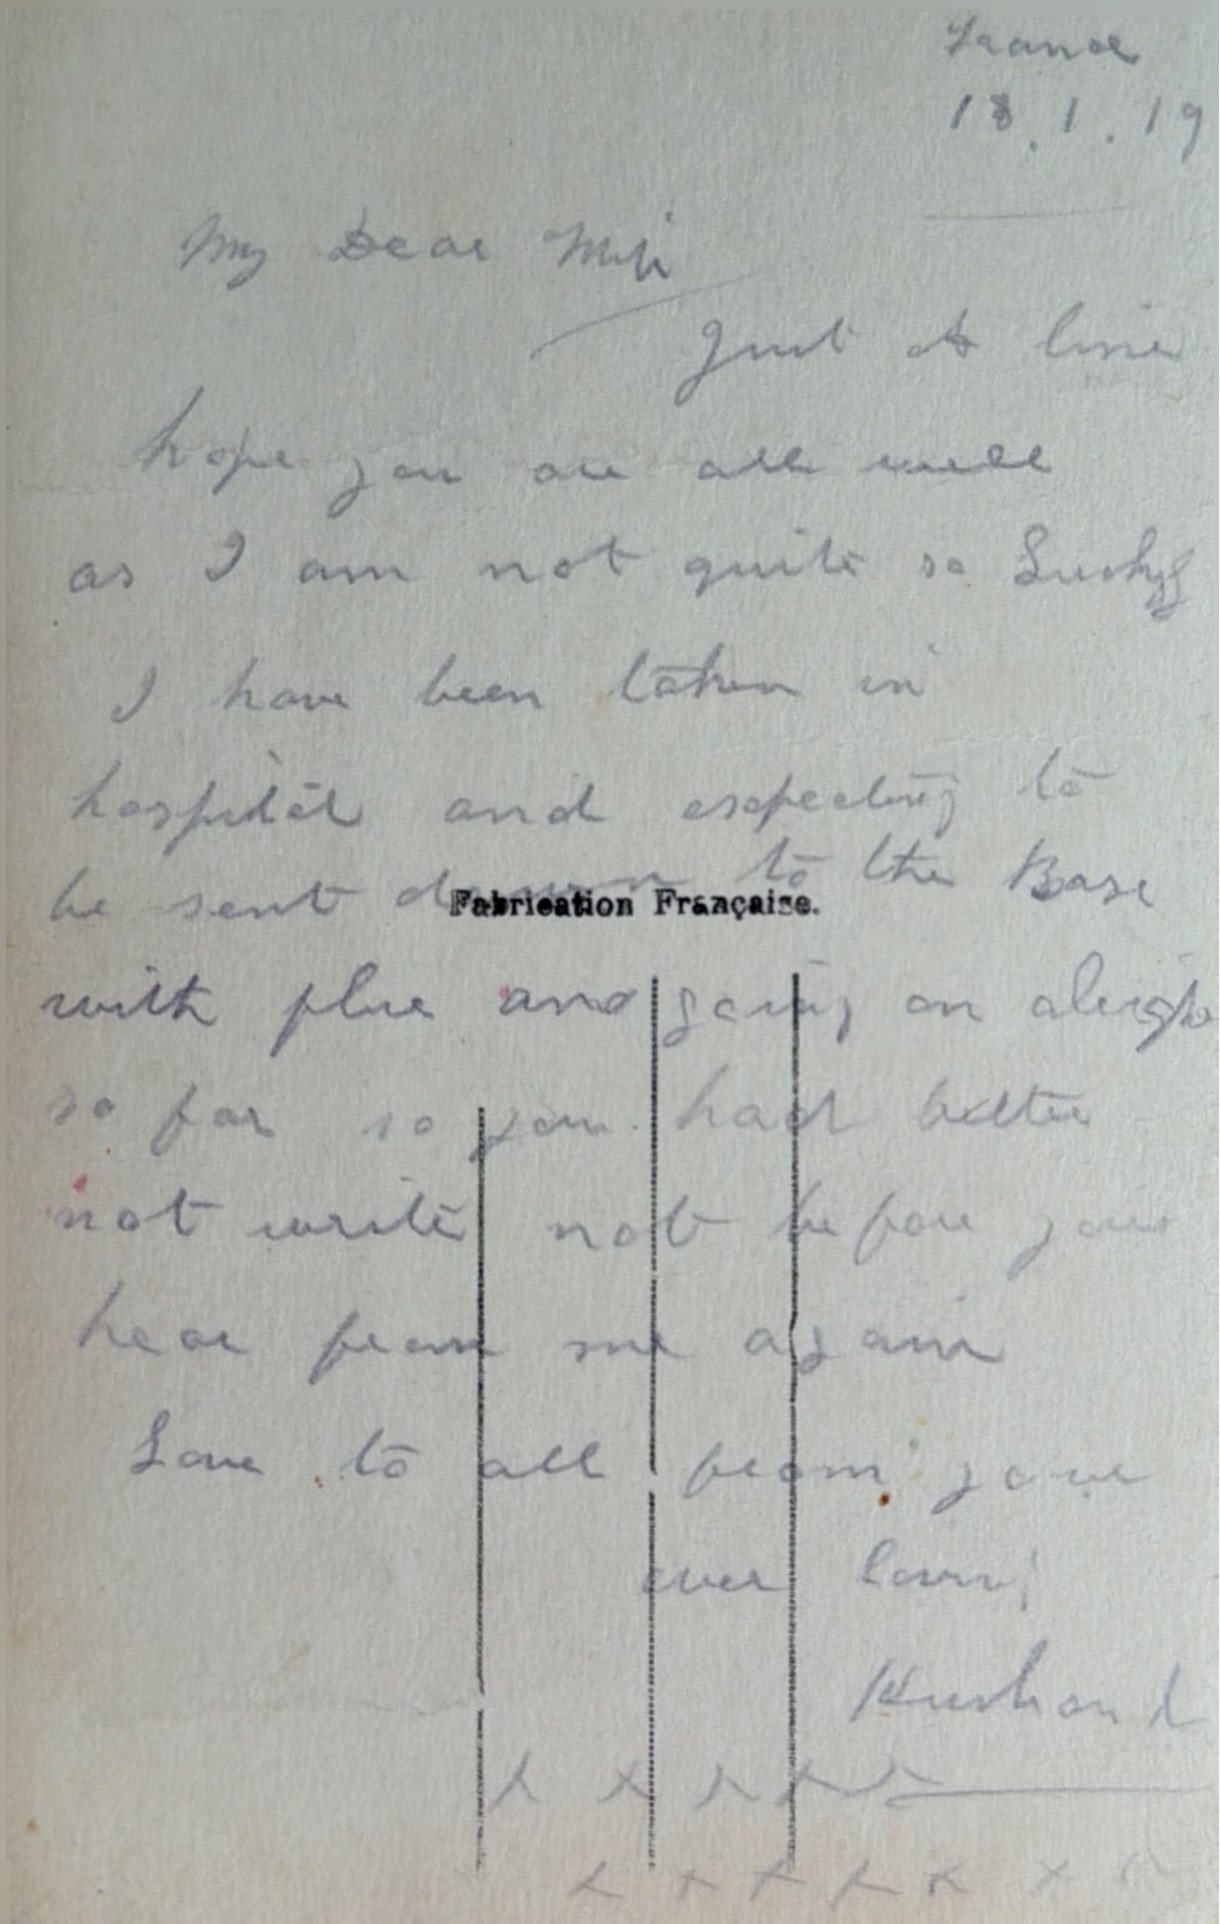 France
18.1.19
My Dear Wife
Just A line
hope you are all well
as I am not quite so Lucky
I have been taken in
hospital and expecting to
be sent down to the Base
Fabrication Française.
with plue and going on alright
so far so you had better
not write not before you
hear from me again
Love to all from your
ever loving
Husband
x x x x x
x x x x x x x